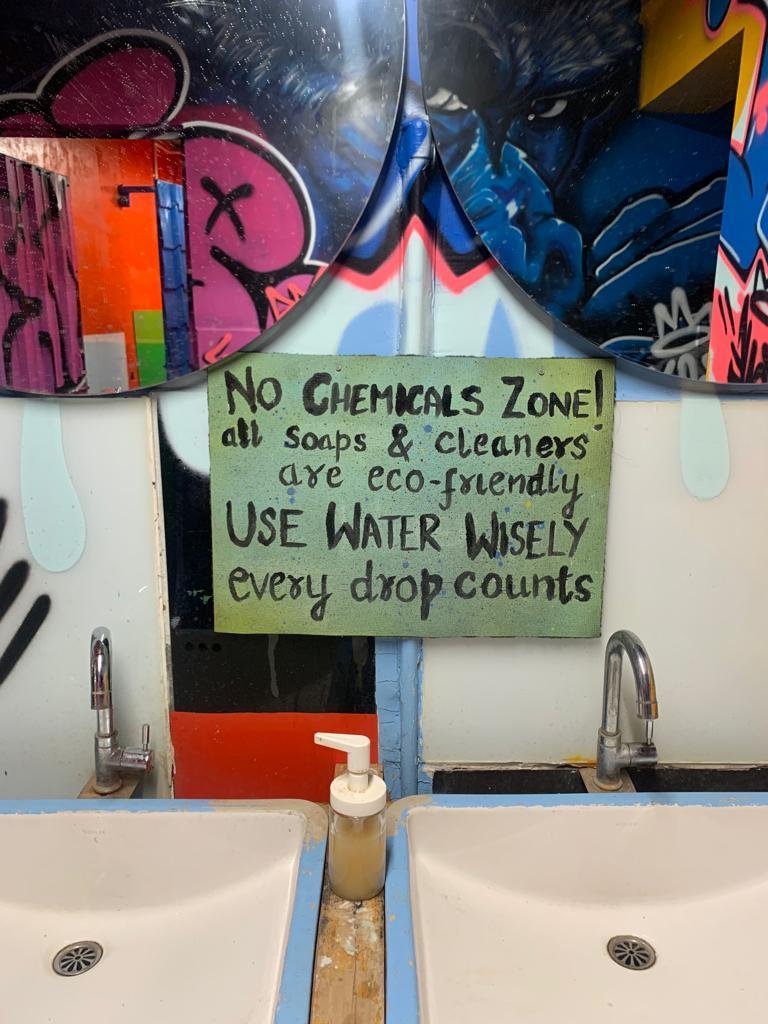 NO CHEMICALS ZONE!
all soaps & cleaners
are eco-friendly
USE WATER WISELY
every drop counts